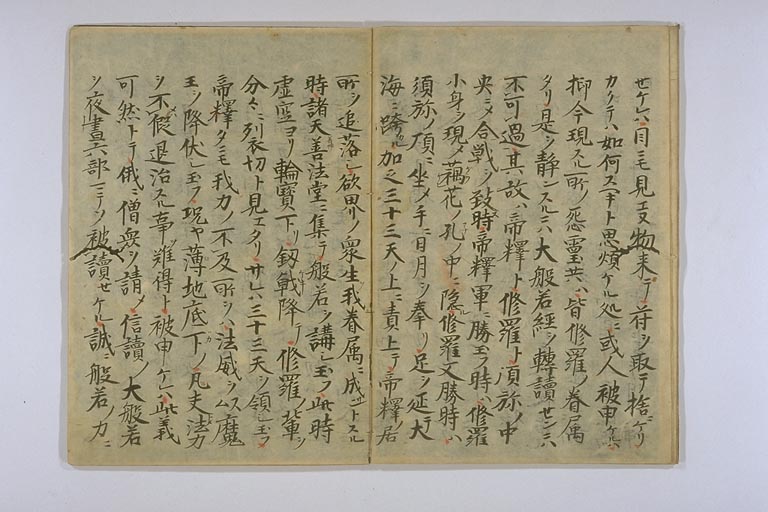 セケレハ目ニモ見エヌ物来テ符ヲ取テ捨ケリ
カクテハ如何スヘキト思煩ケル処ニ或人被申ケルハ
抑今現スル所ノ怨霊共ハ皆修羅ノ眷属
タリ是ヲ静ンスルニハ大般若経ヲ轉讀センニハ
不可過其故ハ帝釋ト修羅ト須弥ノ中
央ニメ合戦ヲ致時帝釋軍ニ勝玉フ時ハ修羅
小身ヲ現メ藕花ノ孔ノ中ニ隠修羅又勝時ハ
須弥ノ頂ニ坐メ手ニ日月ヲ奉リ足ヲ延テ大
海ニ跨ル加之三十三天ノ上ニ責上テ帝釋ノ居
所ヲ追落シ欲界ノ衆生ヲ我眷属ニ成ントスル
時諸天善法堂ニ集テ般若ヲ講シ玉フ此時
虚空ヨリ輪寶下リ釼戟降テ修羅ノ輩ヲ
分々ニ列衣切ト見エタリサレハ三十三天ヲ領シ玉フ
帝釋タニモ我力ノ不及所ヲハ法威ヲ以ム魔
王ヲ降伏シ玉フ况ヤ薄地底下ノ凡夫法力
ヲ不假退治スル事ヲ難得ト被申ケレハ此義
可然トテ俄ニ僧衆ヲ請メ信讀ノ大般若
ヲ夜晝六部ニテソ被讀セケル誠ニ般若ノ力ニ